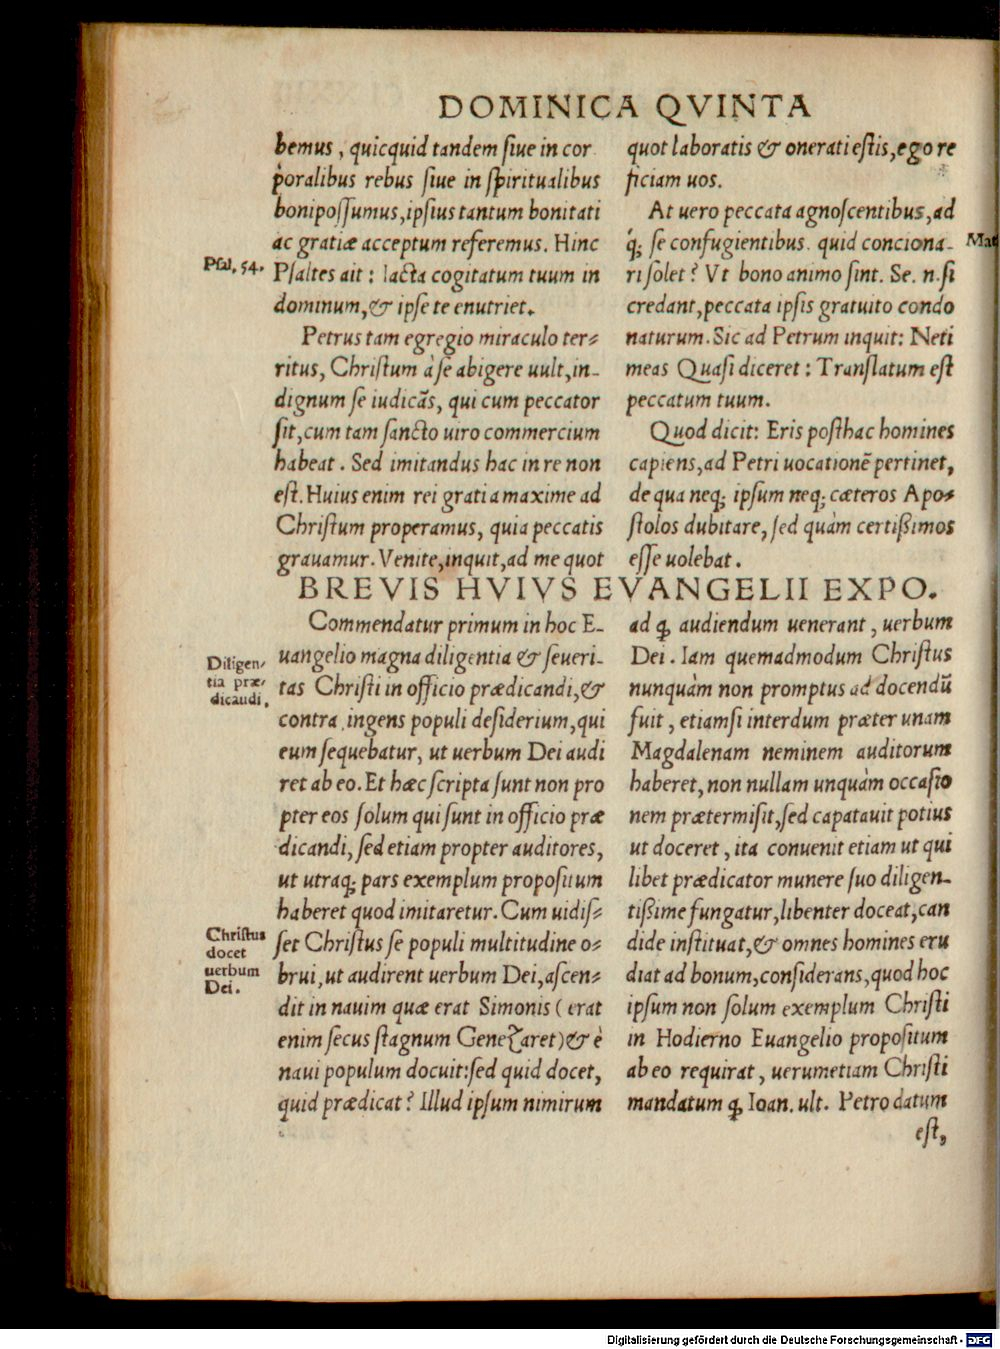 DOMINICA QVINTA
bemus, quicquid tandem ſiue in cor
poralibus rebus ſiue in ſpiritualibus
bonipoſſumus, ipſius tantum bonitati
ac gratiæ acceptum referemus. Hinc
Pſal. 54.
Pſaltes ait: Iacta cogitatum tuum in
dominum, & ipſe te enutriet.
Petrus tam egregio miraculo ter⸗
ritus, Chriſtum à ſe abigere uult, in-
dignum ſe iudicãs, qui cum peccator
ſit, cum tam ſancto uiro commercium
habeat. Sed imitandus hac in re non
eſt. Huius enim rei gratia maxime ad
Chriſtum properamus, quia peccatis
grauamur. Venite, inquit, ad me quot
quot laboratis & onerati eſtis, ego re
ficiam uos.
At uero peccata agnoſcentibus, ad
q́; ſe confugientibus. quid conciona-
Mat
ri ſolet? Vt bono animo ſint. Se. n. ſi
credant, peccata ipſis gratuito condo
naturum. Sic ad Petrum inquit: Neti
meas Quaſi diceret: Tranſlatum eſt
peccatum tuum.
Quod dicit: Eris poſthac homines
capiens, ad Petri uocationẽ pertinet,
de qua neq; ipſum neq; cæteros Apo⸗
ſtolos dubitare, ſed quàm certißimos
eſſe uolebat.
BREVIS HVIVS EVANGELII EXPO.
Commendatur primum in hoc E-
uangelio magna diligentia & ſeueri-
Diligen⸗
tia præ⸗
dicaudi.
tas Chriſti in officio prædicandi, &
contra ingens populi deſiderium, qui
eum ſequebatur, ut uerbum Dei audi
ret ab eo. Et hæc ſcripta ſunt non pro
pter eos ſolum qui ſunt in officio præ
dicandi, ſed etiam propter auditores,
ut utraq; pars exemplum propoſitum
haberet quod imitaretur. Cum uidiſ⸗
Chriſtus
docet
uerbum
Dei.
ſet Chriſtus ſe populi multitudine o⸗
brui, ut audirent uerbum Dei, aſcen⸗
dit in nauim quæ erat Simonis (erat
enim ſecus ſtagnum Genezaret) & è
naui populum docuit: ſed quid docet,
quid prædicat? Illud ipſum nimirum
ad ꝙ audiendum uenerant, uerbum
Dei. Iam quemadmodum Chriſtus
nunquàm non promptus ad docendũ
fuit, etiamſi interdum præter unam
Magdalenam neminem auditorum
haberet, non nullam unquàm occaſio
nem prætermiſit, ſed capatauit potius
ut doceret, ita conuenit etiam ut qui
libet prædicator munere ſuo diligen-
tißime fungatur, libenter doceat, can
dide inſtituat, & omnes homines eru
diat ad bonum, conſiderans, quod hoc
ipſum non ſolum exemplum Chriſti
in Hodierno Euangelio propoſitum
ab eo requirat, uerumetiam Chriſti
mandatum ꝙ Ioan. ult. Petro datum
eſt,
Digitalisierung gefördert durch die Deutsche Forschungsgemeinschaft - DFG